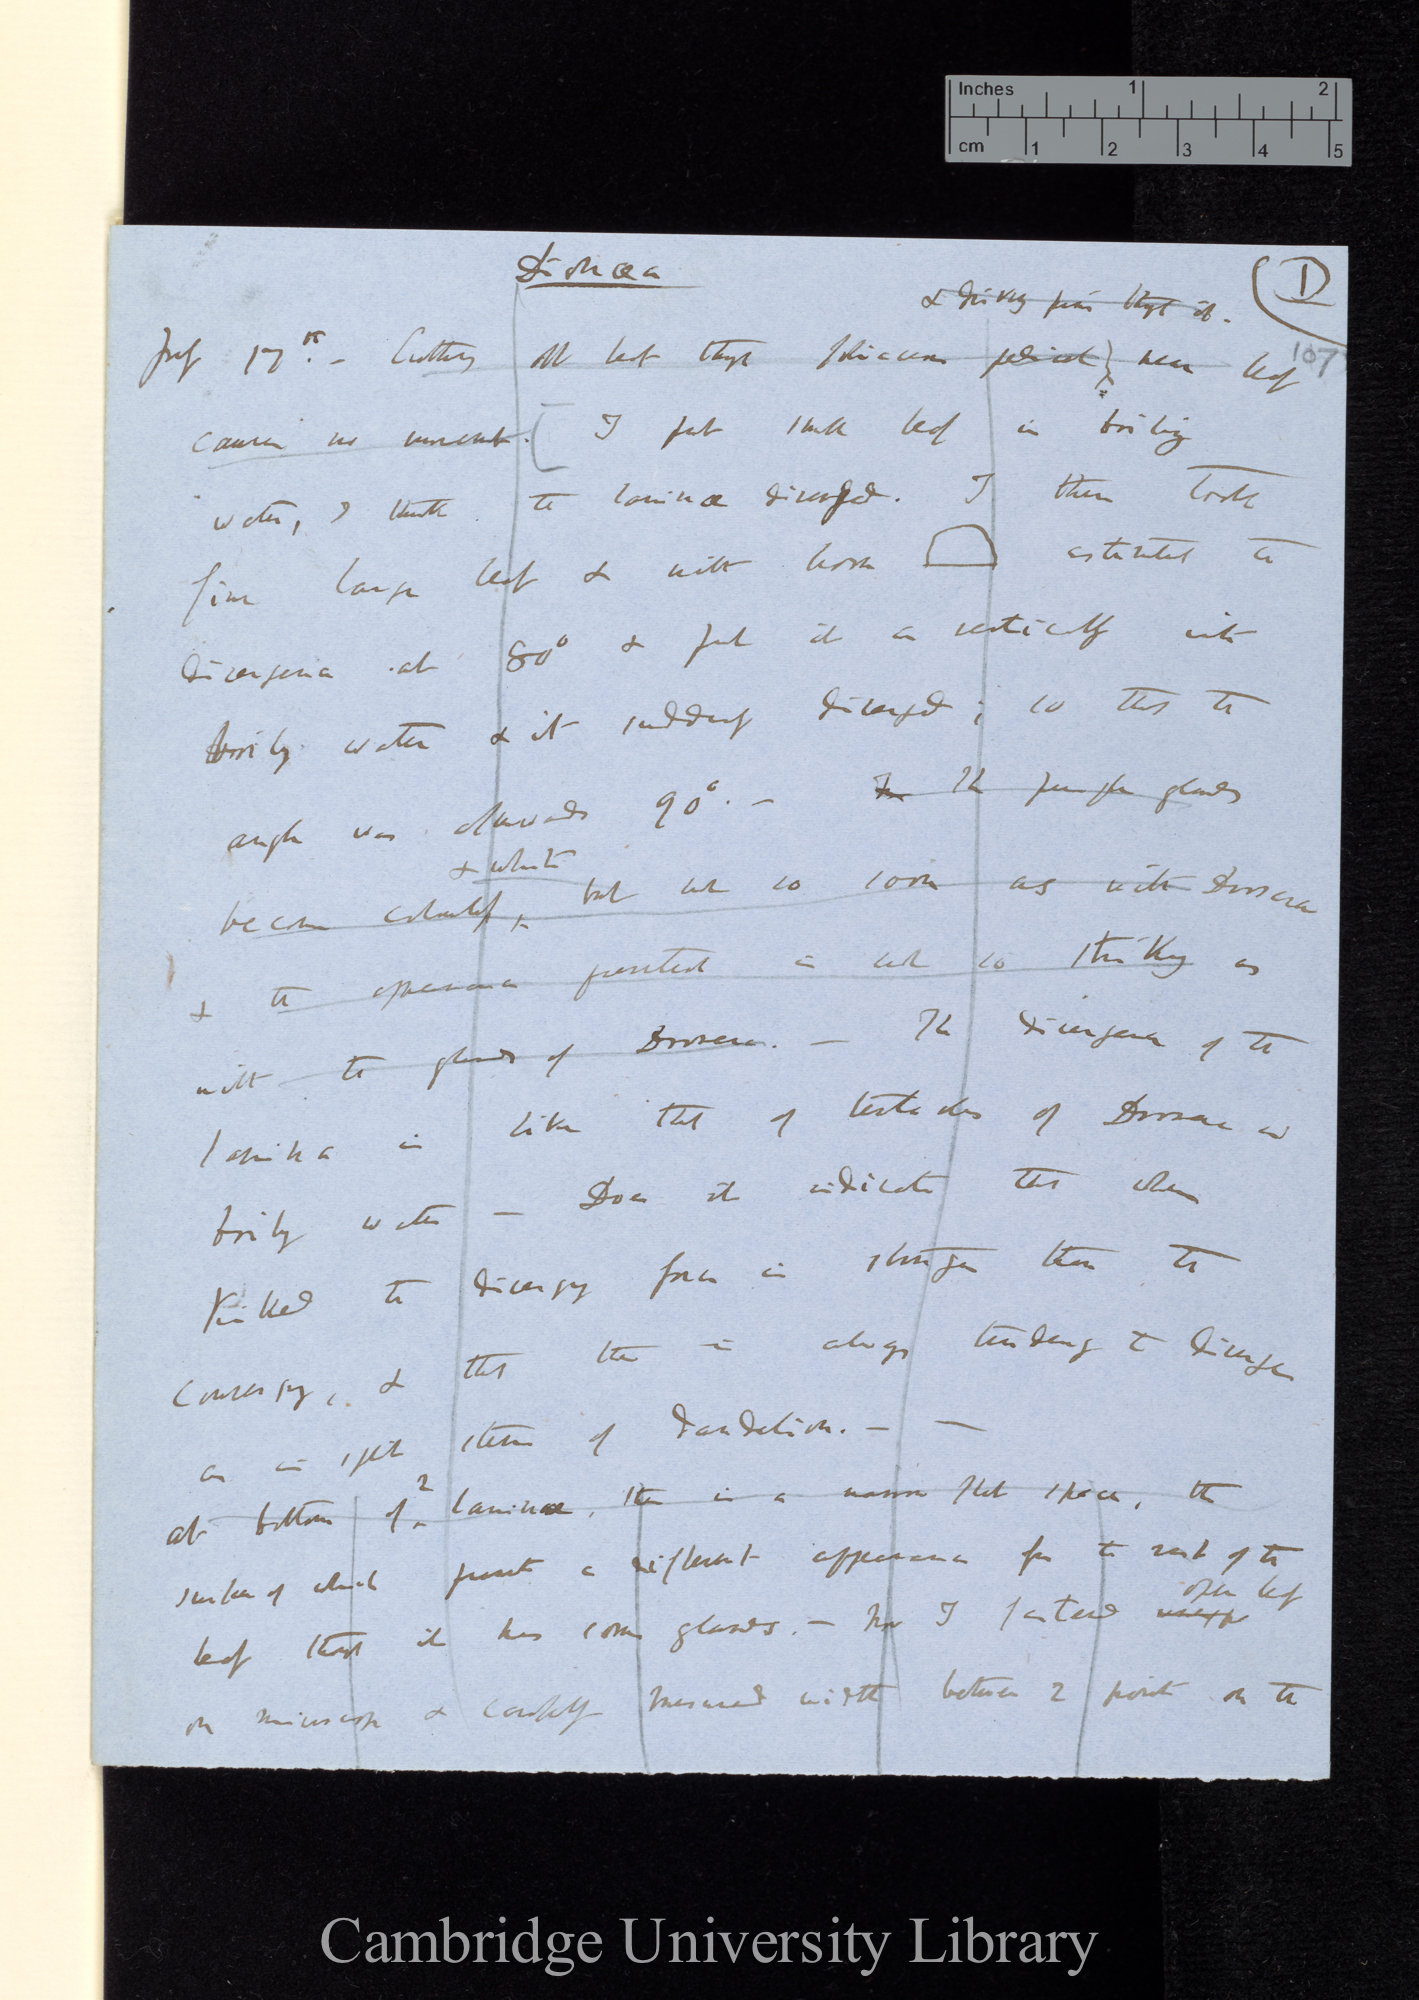 Inches 1 2
cm 1 2 3 4 5
Dionæa
(1)
& driving pins thro' it.
107
July 17th. — Cutting off leaf through foliaceous near leaf
causes no movement. [ I put small leaf in boiling
water, I think the laminæ diverged. I then took
fine large leaf & with horn estimated the
divergence at 80° & put it in vertically into
boiling water & it suddenly diverged; so that the
angle was afterwards 90°. — The purple glands
& white
become coloured, but not so soon as with Drosera
& the appearance presented is not so striking as
with the glands of Drosera. — The divergence of the
lamina is like that of tentacles of Drosera in
boiling water — Does it indicate that when
killed the diverging force is stronger than the
converging, & that there is always tending to diverge
as in split stem of Dandelion. — —
at bottom of 2 laminæ, there is a narrow flat space, the
surface of which presents a different appearance from the rest of the
open leaf
leaf though it has some glands. — Now I fastened
on microscope & carefully measured width between 2 points on the
Cambridge University Library